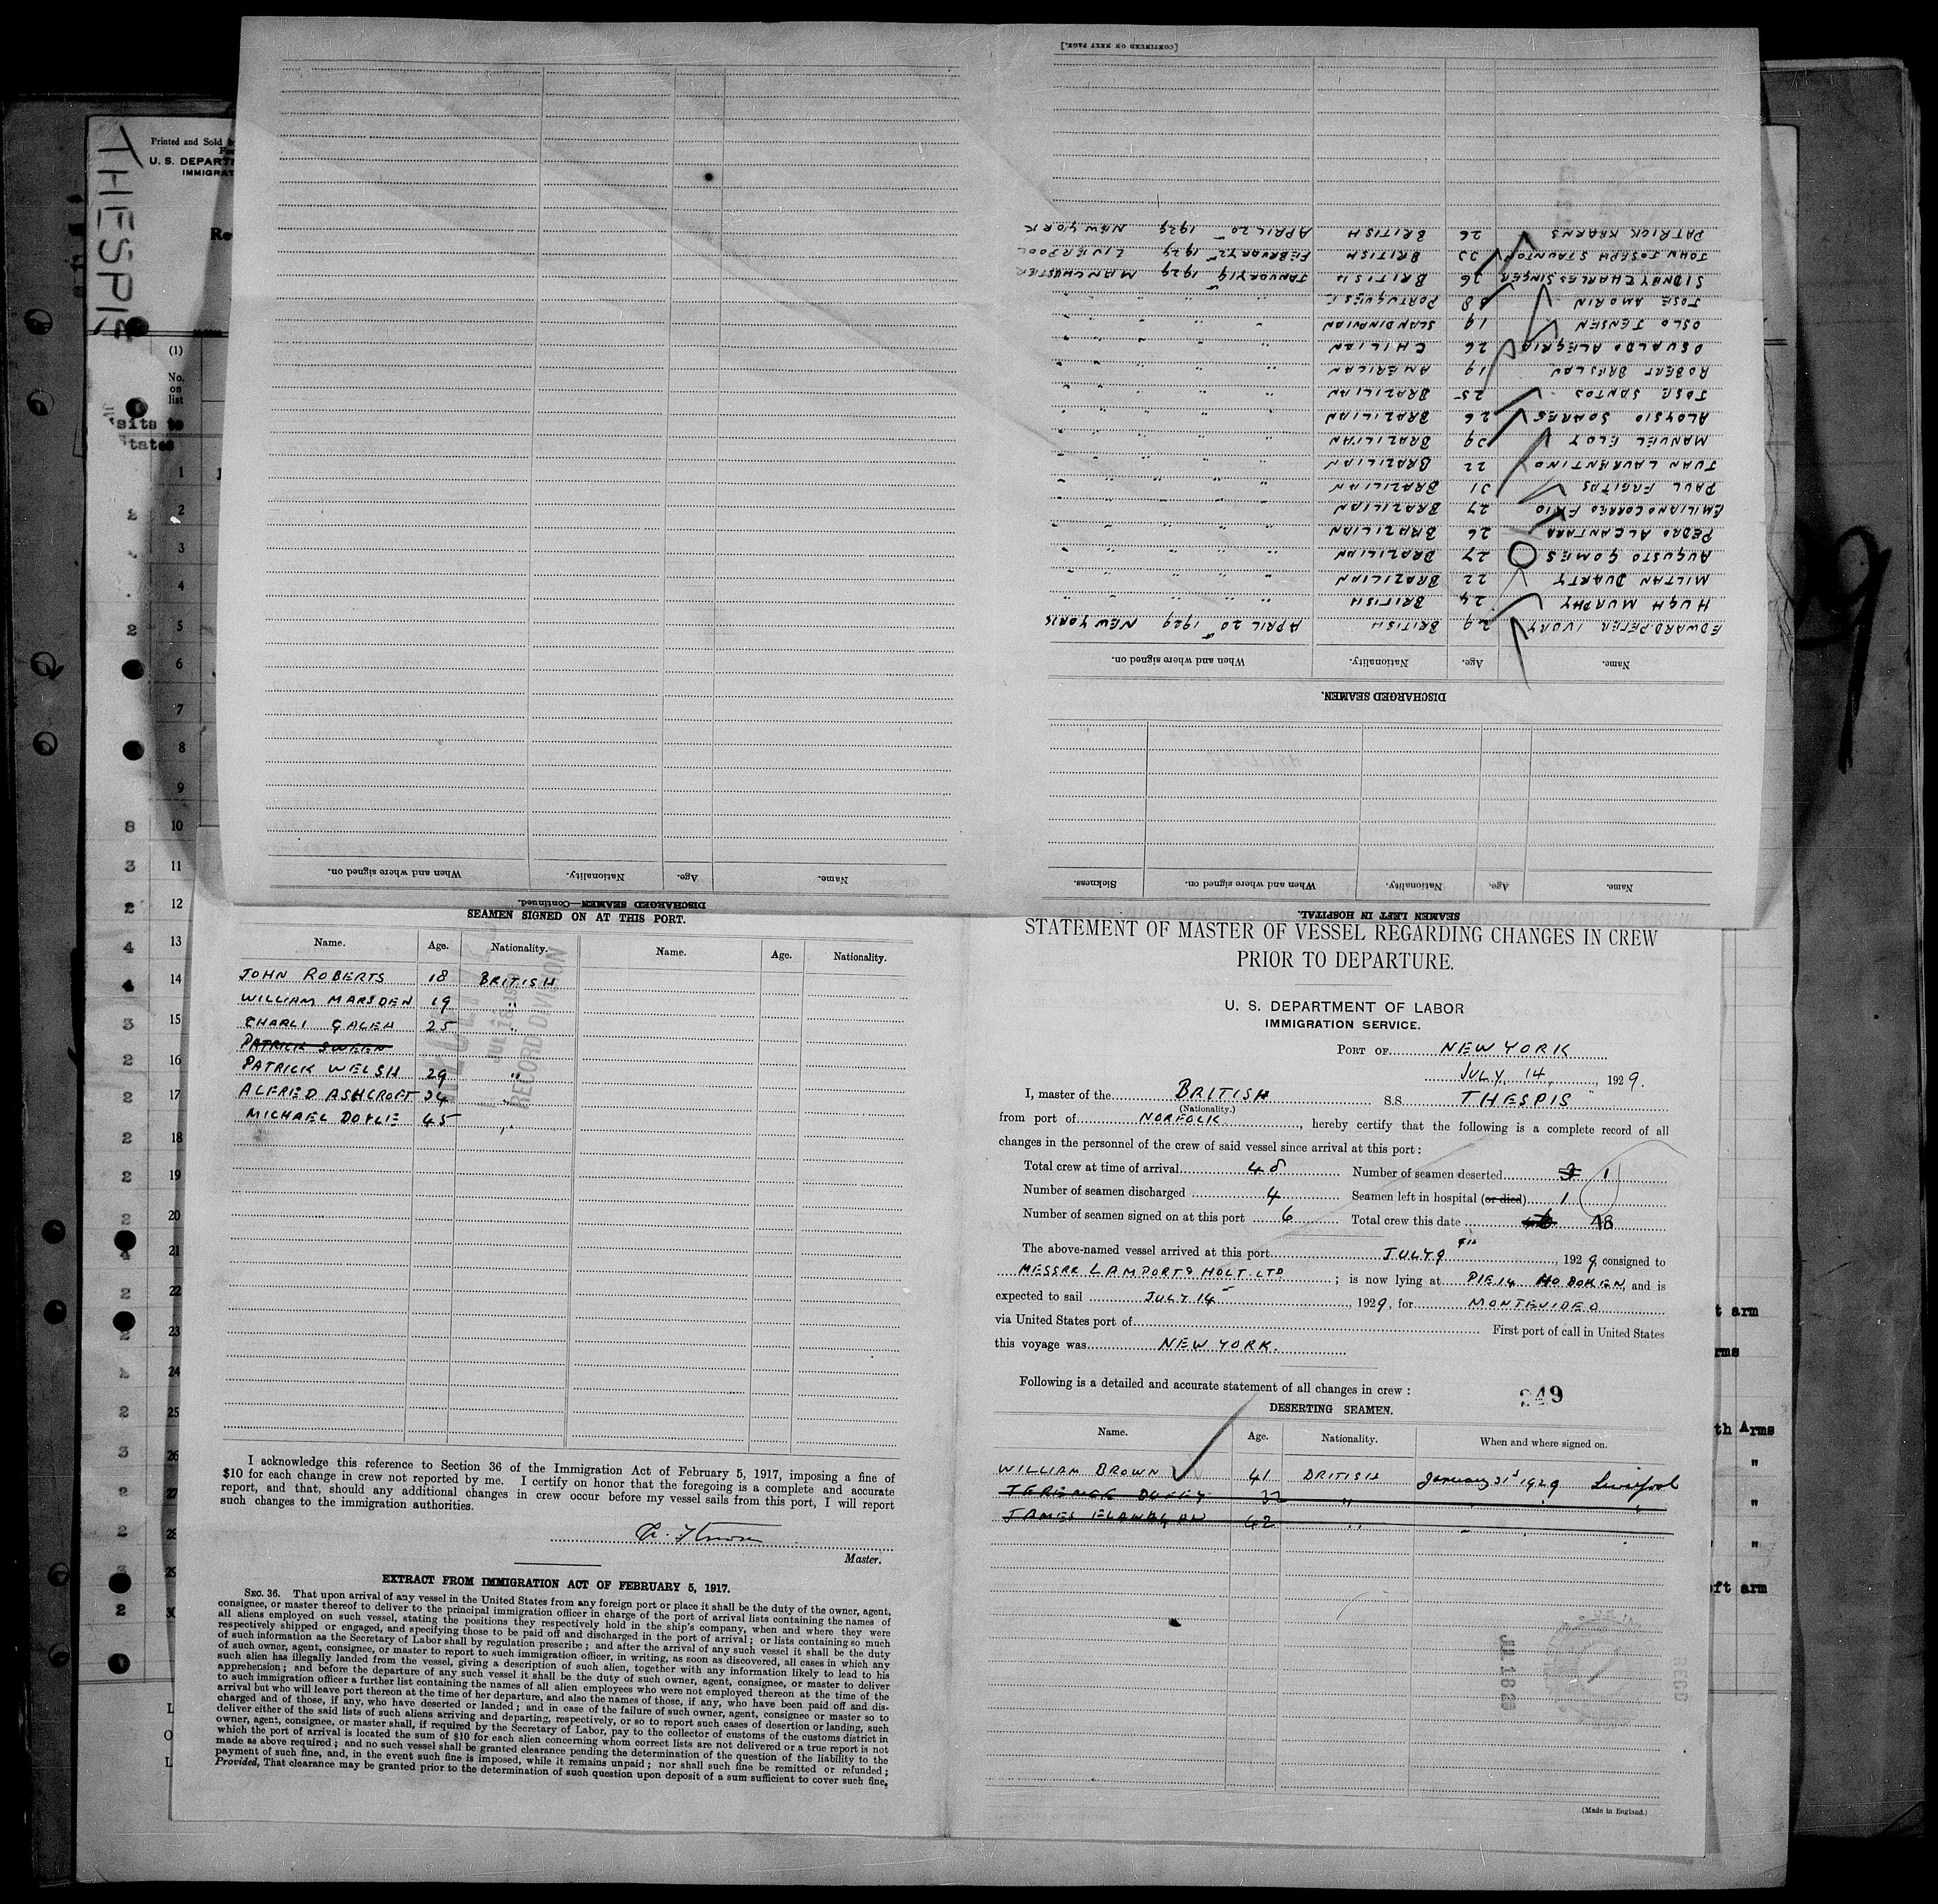 [CONTINUED ON NEXT PAGE.]
PATRICK KEARNS 26 BRITISH APRIL 20 1929 NEW YORK
JOHN JOSEPH STAUNTON BRITISH FEBRUARY 2 1929 LIVERPOOL
SIDNEY CHARLES SINGER 36 BRITISH JANUARY 19 1929 MANCHESTER
JOSE AMORIN PORTUGUESE " " " "
OSLO JENSEN 19 SCANDINAVIAN " " " "
OSVALDO ALEGRIA 26 CHILIAN " " " "
ROBERT BRESLAN 19 AMERICAN " " " "
JOSE SANTOS 25 BRAZILIAN " " " "
ALOYSIO SOARES 26 BRAZILIAN " " " "
MANUEL ELOY 29 BRAZILIAN " " " "
JUAN LAURENTINO 22 BRAZILIAN " " " "
PAUL 31 BRAZILIAN " " " "
EMILIANO CORREO 27 BRAZILIAN " " " "
PEDRO ALCANTARA 26 BRAZILIAN " " " "
AUGUSTO GOMES 27 BRAZILIAN " " " "
MILTAN DUARTY 22 BRAZILIAN " " " "
HUGH MURPHY 24 BRITISH " " " "
EDWARD PETER IVORY 29 BRITISH APRIL 20 1929 NEW YORK
Name. Age. Nationality. When and where signed on.
DISCHARGED SEAMEN.
Name. Age. Nationality. When and where signed on. Sickness.
SEAMEN LEFT IN HOSPITAL.
Name. Age. Nationality. When and where signed on.
DISCHARGED SEAMEN—Continued.
THESPIS
Printed and Sold
U. S. DEPART
IMMIGRAT
(1)
No.
on
list
1
2
3
4
5
6
7
8
9
10
11
12
13
14
15
16
17
18
19
20
21
22
23
24
25
26
27
28
29
30
SEAMEN SIGNED ON AT THIS PORT.
Name. Age. Nationality. Name. Age. Nationality.
JOHN ROBERTS 18 BRITISH
WILLIAM MARSDEN 19 "
CHARLI GALEA 25 "
PATRICK SWEEN
PATRICK WELSH 29 "
ALFRED ASHCROFT 34 "
MICHAEL DOYLE 45 "
RECORD DIVISION
I acknowledge this reference to Section 36 of the Immigration Act of February 5, 1917, imposing a fine of
$10 for each change in crew not reported by me. I certify on honor that the foregoing is a complete and accurate
report, and that, should any additional changes in crew occur before my vessel sails from this port, I will report
such changes to the immigration authorities.
Master.
EXTRACT FROM IMMIGRATION ACT OF FEBRUARY 5, 1917.
SEC. 36. That upon arrival of any vessel in the United States from any foreign port or place it shall be the duty of the owner, agent,
consignee, or master thereof to deliver to the principal immigration officer in charge of the port of arrival lists containing the names of
all aliens employed on such vessel, stating the positions they respectively hold in the ship's company, when and where they were
respectively shipped or engaged, and specifying those to be paid off and discharged in the port of arrival; or lists containing so much
of such information as the Secretary of Labor shall by regulation prescribe; and after the arrival of any such vessel it shall be the duty
of such owner, agent, consignee, or master to report to such immigration officer, in writing, as soon as discovered, all cases in which any
such alien has illegally landed from the vessel, giving a description of such alien, together with any information likely to lead to his
apprehension; and before the departure of any such vessel it shall be the duty of such owner, agent, consignee, or master to deliver
to such immigration officer a further list containing the names of all alien employees who were not employed thereon at the time of the
arrival but who will leave port thereon at the time of her departure, and also the names of those, if any, who have been paid off and dis-
charged and of those, if any, who have deserted or landed; and in case of the failure of such owner, agent, consignee or master so to
deliver either of the said lists of such aliens arriving and departing, respectively, or so to report such cases of desertion or landing, such
owner, agent, consignee, or master shall, if required by the Secretary of Labor, pay to the collector of customs of the customs district in
which the port of arrival is located the sum of $10 for each alien concerning whom correct lists are not delivered or a true report is not
made as above required; and no such vessel shall be granted clearance pending the determination of the question of the liability to the
payment of such fine, and, in the event such fine is imposed, while it remains unpaid; nor shall such fine be remitted or refunded;
Provided, That clearance may be granted prior to the determination of such question upon deposit of a sum sufficient to cover such fine,
STATEMENT OF MASTER OF VESSEL REGARDING CHANGES IN CREW
PRIOR TO DEPARTURE.
U. S. DEPARTMENT OF LABOR
IMMIGRATION SERVICE.
PORT OF NEW YORK
JULY 14, 1929.
I, master of the BRITISH S.S. THESPIS
(Nationality.)
from port of NORFOLK, hereby certify that the following is a complete record of all
changes in the personnel of the crew of said vessel since arrival at this port:
Total crew at time of arrival 48 Number of seamen deserted 3 1
Number of seamen discharged 4 Seamen left in hospital (or died) 1
Number of seamen signed on at this port 6 Total crew this date 48
The above-named vessel arrived at this port JULY 9th, 1929, consigned to
MESSRS LAMPORT & HOLT LTD; is now lying at PIE 14 HOBOKEN, and is
expected to sail JULY 14, 1929, for MONTEVIDEO
via United States port of First port of call in United States
this voyage was NEW YORK.
Following is a detailed and accurate statement of all changes in crew:
249
DESERTING SEAMEN.
Name. Age. Nationality. When and where signed on.
WILLIAM BROWN 41 BRITISH January 31st 1929 Liverpool
TERENCE DUFFY 32 " " " "
JAMES FLANAGAN 42 " " "
JUL 18 29
RECD
(Made in England.)
t arm
rms
th Arms
"
"
"
eft arm